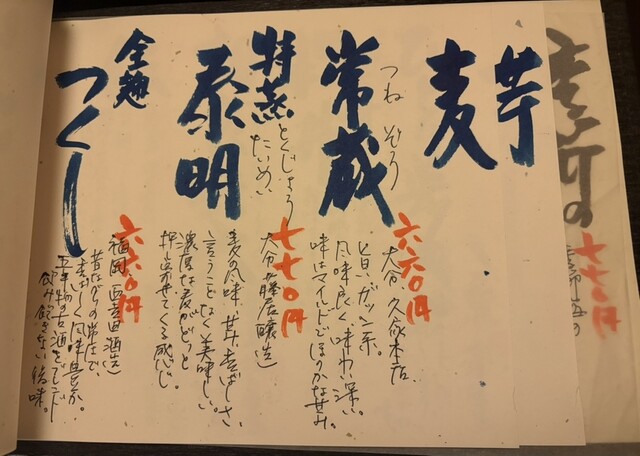 芋
麦
常蔵
つねぞう
六六〇円
大分 久家本店
旨いガツン系。
風味良く、味わい深い。
味はマイルドでほのかな甘み。
特蒸
泰明
とくじょう
たいめい
七七〇円
大分 藤居醸造
麦の風味、甘み、香ばしさ、
言うことなく美味しい。
濃厚な麦がどっと
押し寄せてくる感じ。
全麹
つくし
六六〇円
福岡 西吉田酒造
昔ながらの常圧で、
香ばしく風味豊か。
五年物の古酒をブレンド
飲み飽きない後味。
七七〇円